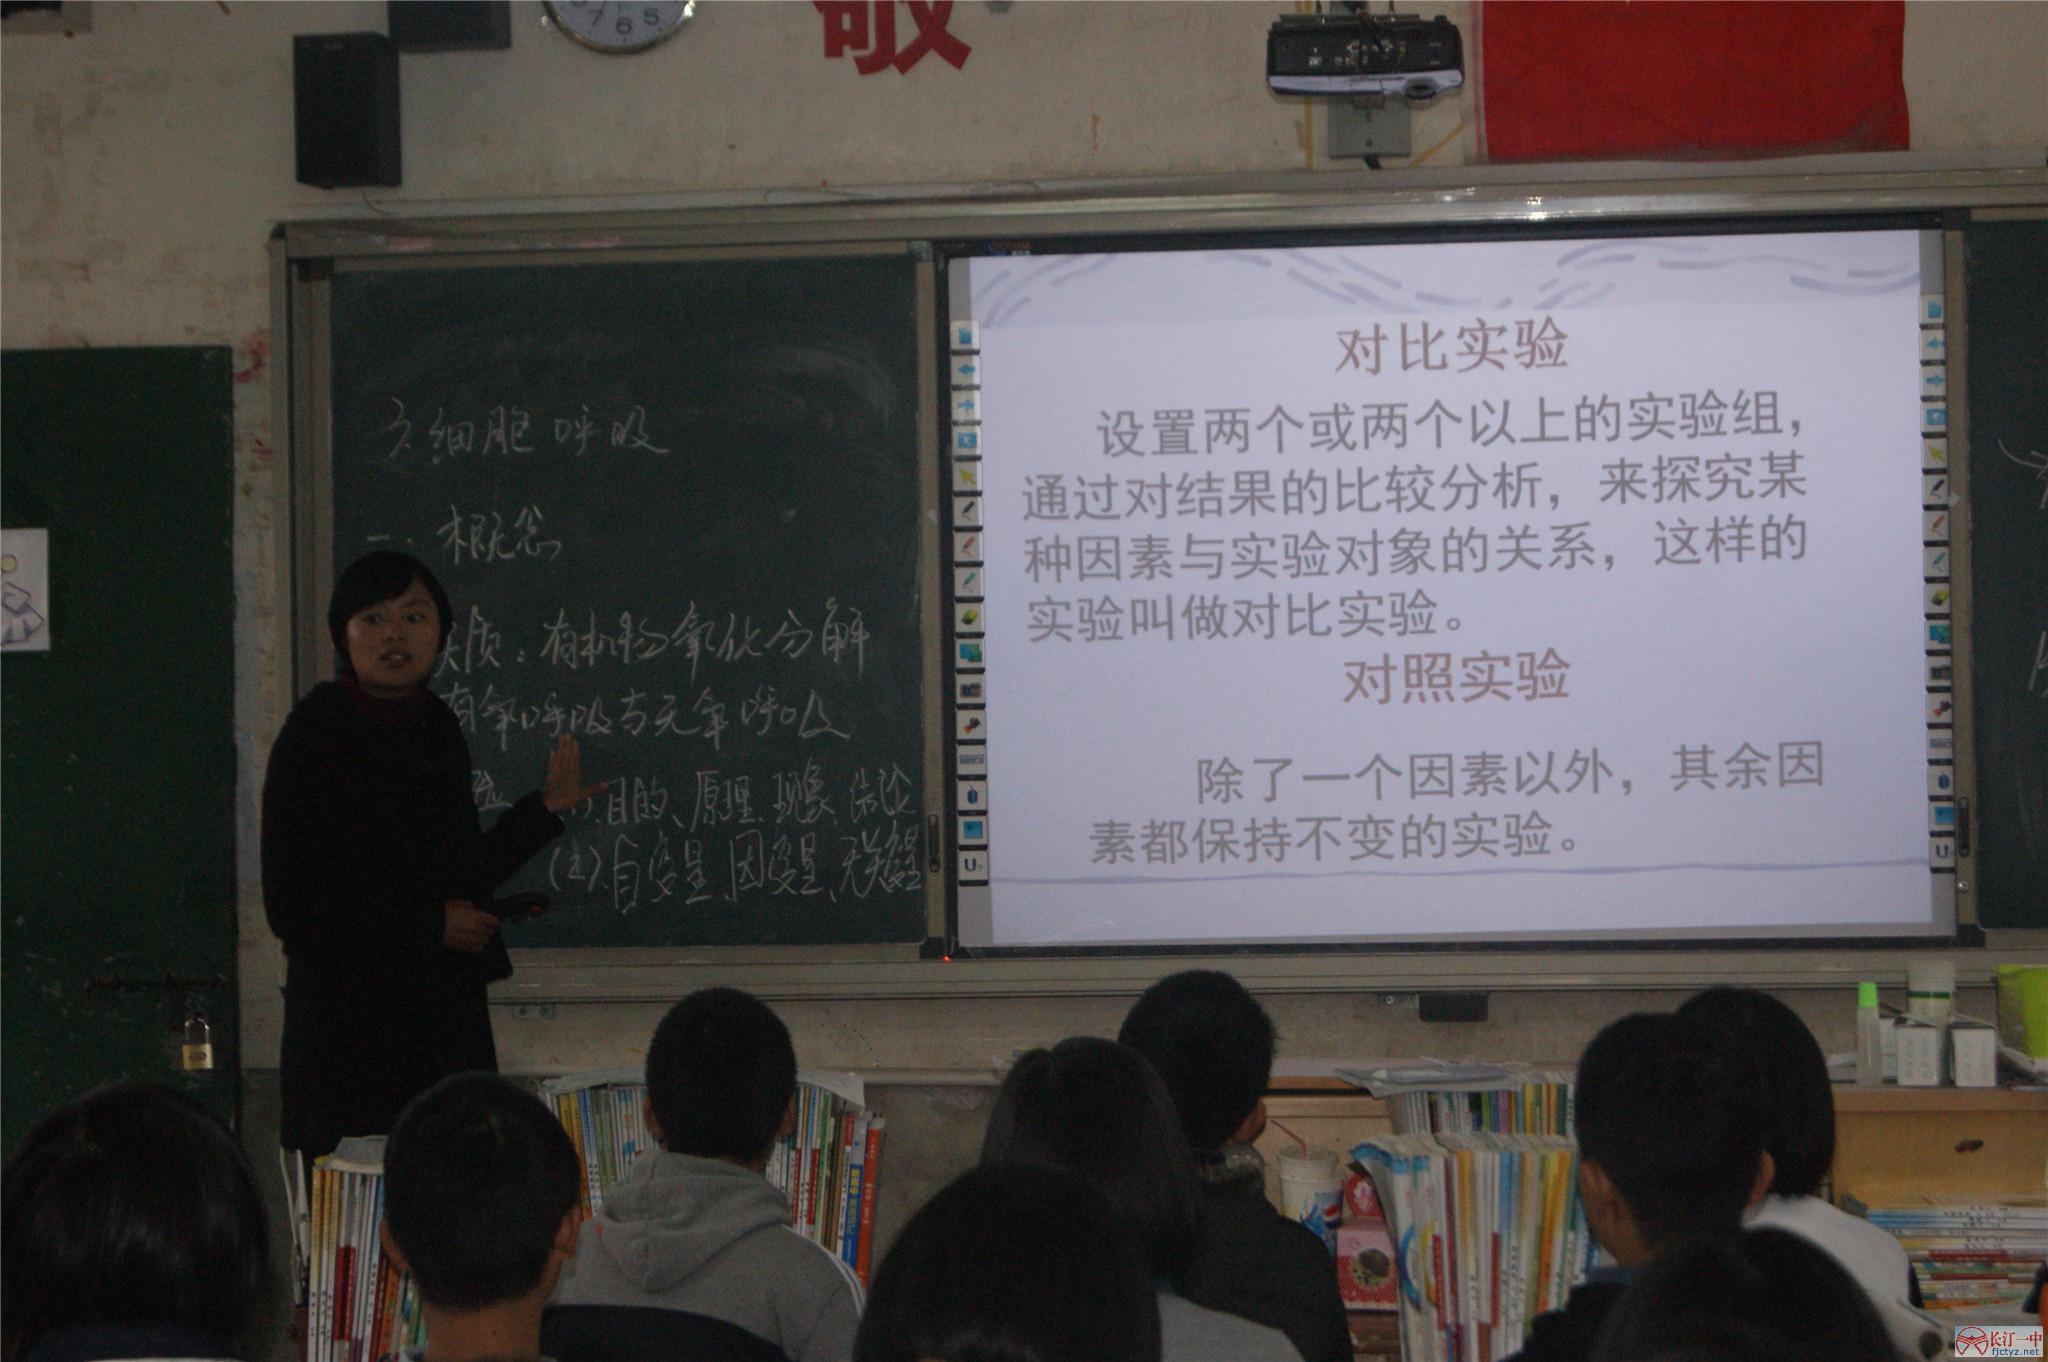 7 6 5
敬
细胞呼吸
一. 概念
质：有机物氧化分解
有氧呼吸与无氧呼吸
目的、原理、现象、结论
(2).自变量、因变量、无关变量
对比实验
设置两个或两个以上的实验组，
通过对结果的比较分析，来探究某
种因素与实验对象的关系，这样的
实验叫做对比实验。
对照实验
除了一个因素以外，其余因
素都保持不变的实验。
长汀一中
fjctyz.net